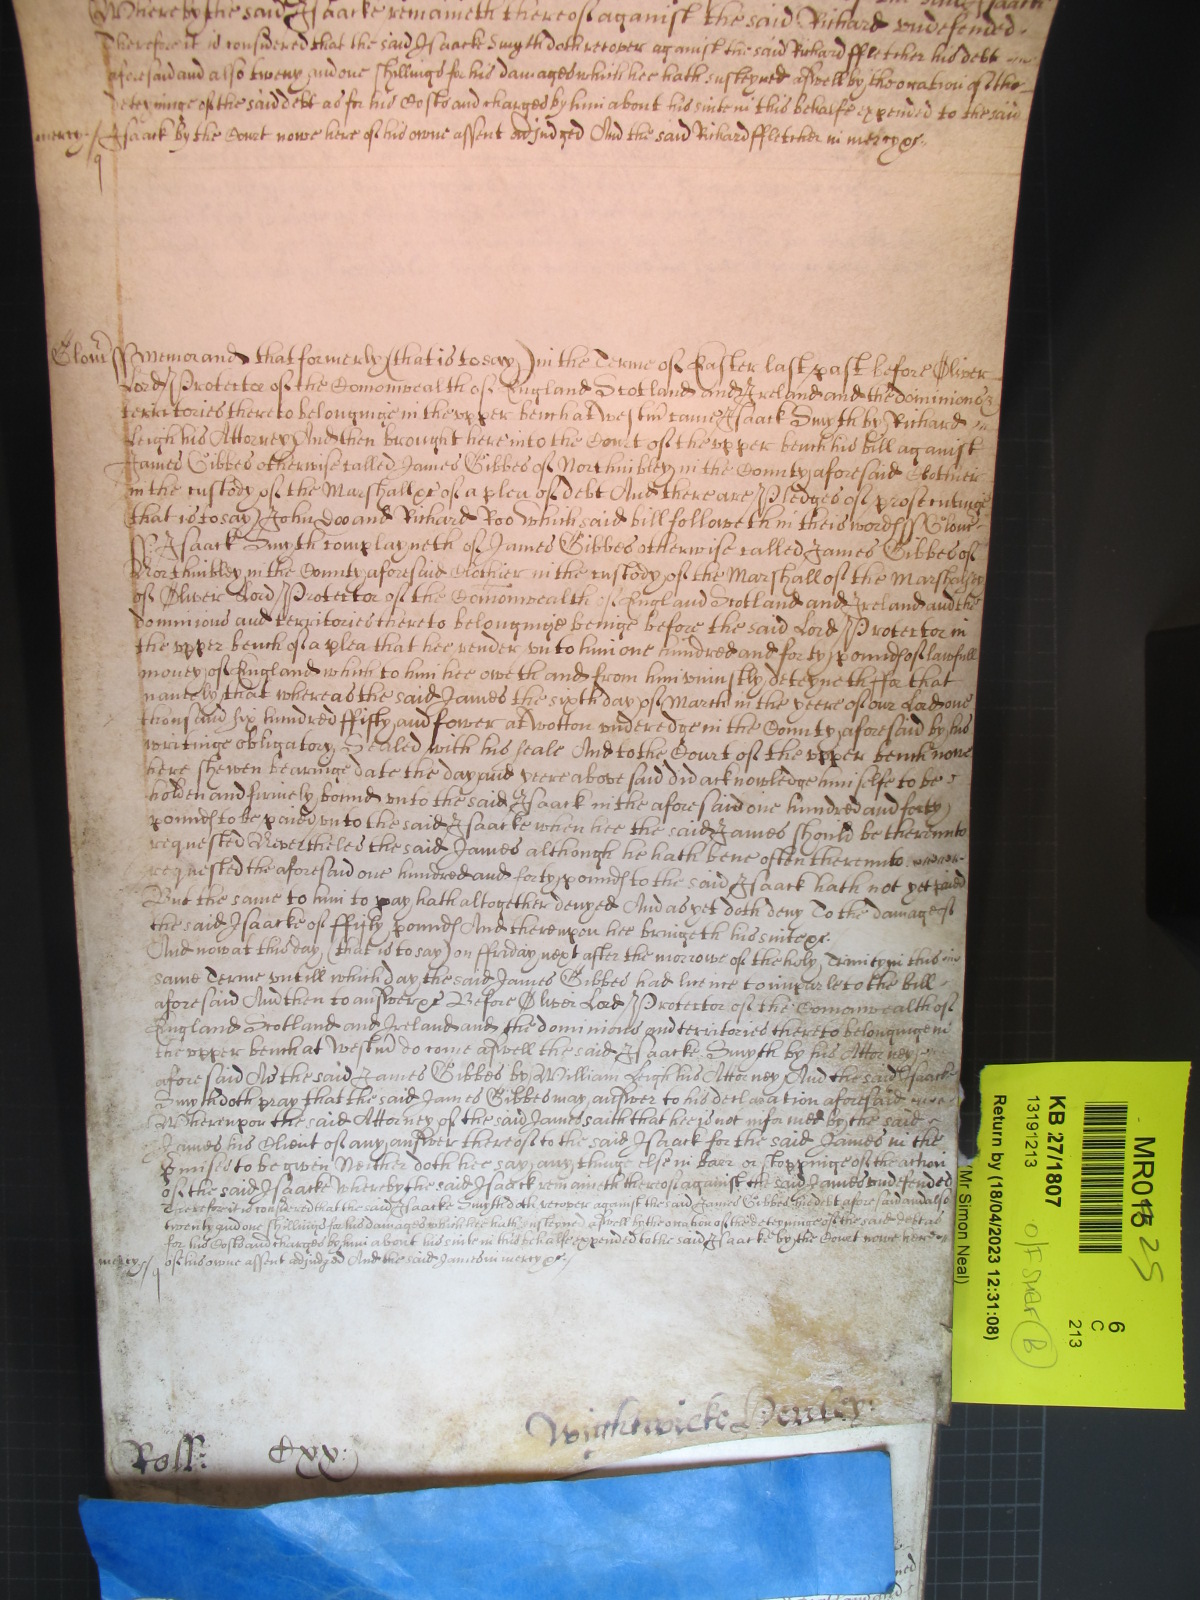 Whereby the said Isaacke remaineth thereof against the said Richard undefended
Therefore it is considered that the said Isaacke Smyth doth recover against the said Richard ffletcher his debt
aforesaid and also twenty and one shillings for his damages which hee hath susteyned aswell by the occation of the
deteyninge of the said debt as for his Costs and charges by him about his suite in this behalfe expended to the said
mercy Isaack by the Court nowe here of his owne assent adjudged And the said Richard ffletcher in mercy &c
Glouc ss Memorand that formerly (that is to say) in the Terme of Easter last past before Oliver
Lord Protector of the Comonwealth of England Scotland and Ireland and the dominions &
territories thereto belonginge in the upper bench at Westm came Isaack Smyth by Richard
Leigh his Attorney And then brought here into the Court of the upper bench his bill against
James Gibbes otherwise called James Gibbes of Northnibley in the County aforesaid Clothier
in the custody of the Marshall &c of a plea of debt And there are Pledges of prosecutinge
that is to say John Doo and Richard Roo which said bill followeth in theis words ss Glouc
ss Isaack Smyth complayneth of James Gibbes otherwise called James Gibbes of
Northnibley in the County aforesaid Clothier in the custody of the Marshall of the Marshalsey
of Oliver Lord Protector of the Comonwealth of England Scotland and Ireland and the
dominions and territories thereto belonginge beinge before the said Lord Protector in
the upper bench of a plea that hee render unto him one hundred and forty pounds of lawfull
money of England which to him hee oweth and from him uniustly deteyneth ffor that
namely that whereas the said James the sixth day of March in the yeere of our Lord one
thousand six hundred ffifty and fower at Wotton underedge in the County aforesaid by his
writinge obligatory Sealed with his seale And to the Court of the upper bench nowe
here shewen bearinge date the day and yeere abovesaid did acknowledge himselfe to be
holden and firmely bound unto the said Isaack in the aforesaid one hundred and forty
pounds to be paied unto the said Isaacke when hee the said James should be thereunto
requested Nevertheles the said James although he hath bene often thereunto
requested the aforesaid one hundred and forty pounds to the said Isaack hath not yet paied
But the same to him to pay hath altogether denyed And as yet doth deny To the damage of
the said Isaacke of ffifty pounds And thereupon hee bringeth his suite &c
And now at this day (that is to say) on ffriday next after the morrowe of the holy Trinity in this
same Terme untill which day the said James Gibbes had licence to imparle to the bill
aforesaid And then to answer &c Before Oliver Lord Protector of the Comonwealth of
England Scotland and Ireland and the dominions and territories thereto belonginge in
the upper bench at Westm do come aswell the said Isaacke Smyth by his Attorney
aforesaid As the said James Gibbes by William Leigh his Attorney And the said Isaacke
Smyth doth pray that the said James Gibbes may answer to his declaration aforesaid
Whereupon the said Attorney of the said James saith that hee is not informed by the said
James his Client of any answer thereof to the said Isaack for the said James in the
p'mises to be given Neither doth hee say any thinge else in barr or stoppinge of the action
of the said Isaacke whereby the said Isaack remaineth thereof against the said James undefended
Therefore it is considered that the said Isaacke Smyth doth recover against the said James Gibbes his debt aforesaid and also
twenty and one shillings for his damages which hee hath susteyned aswell by the occation of the deteyninge of the said debt as
for his Costs and charges by him about his suite in this behalfe expended to the said Isaacke by the Court nowe here
mercy of his owne assent adjudged And the said James in mercy &c
Wightwicke Henley
Roll: Cxx:
MR018
25
6
C
213
KB 27/1807
13191213
O/F
B
Return by (18/04/2023 12:31:08)
(Mr Simon Neal)